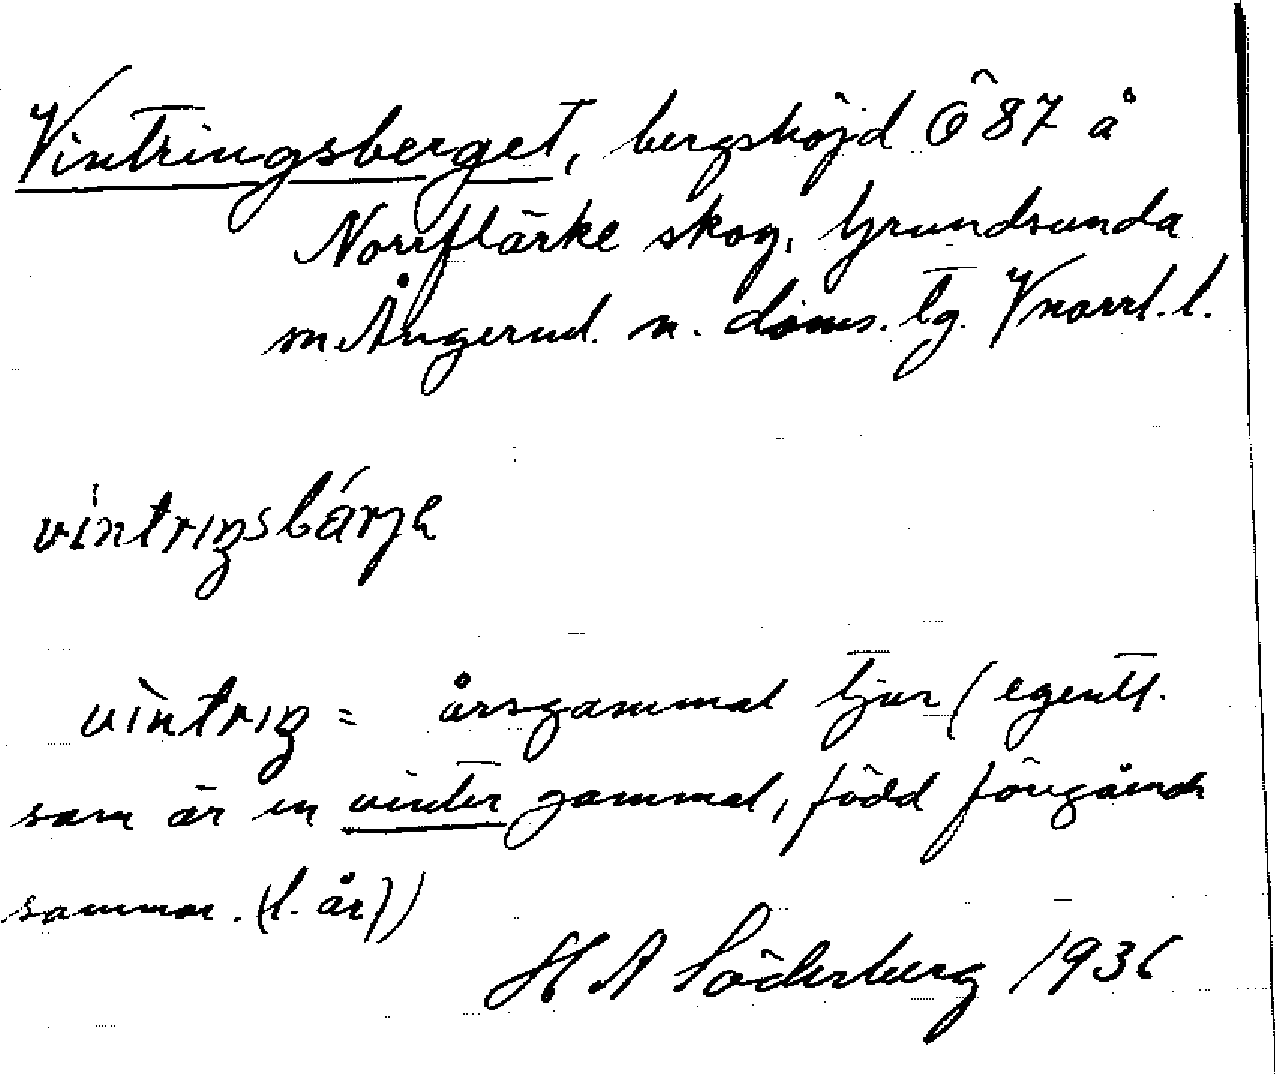 Vintringsberget, bergshöjd Ö 87 å
Norrflärke skog, Grundsunda
sn. Ångerml. n. doms. tg. Vnorrl. l.
vìntrıŋsbárjɐ
vìntrıŋ = årsgammal tjur (egentl.
som är en vinter gammal, född föregående
sommar. (l. år))
H A Söderberg 1936